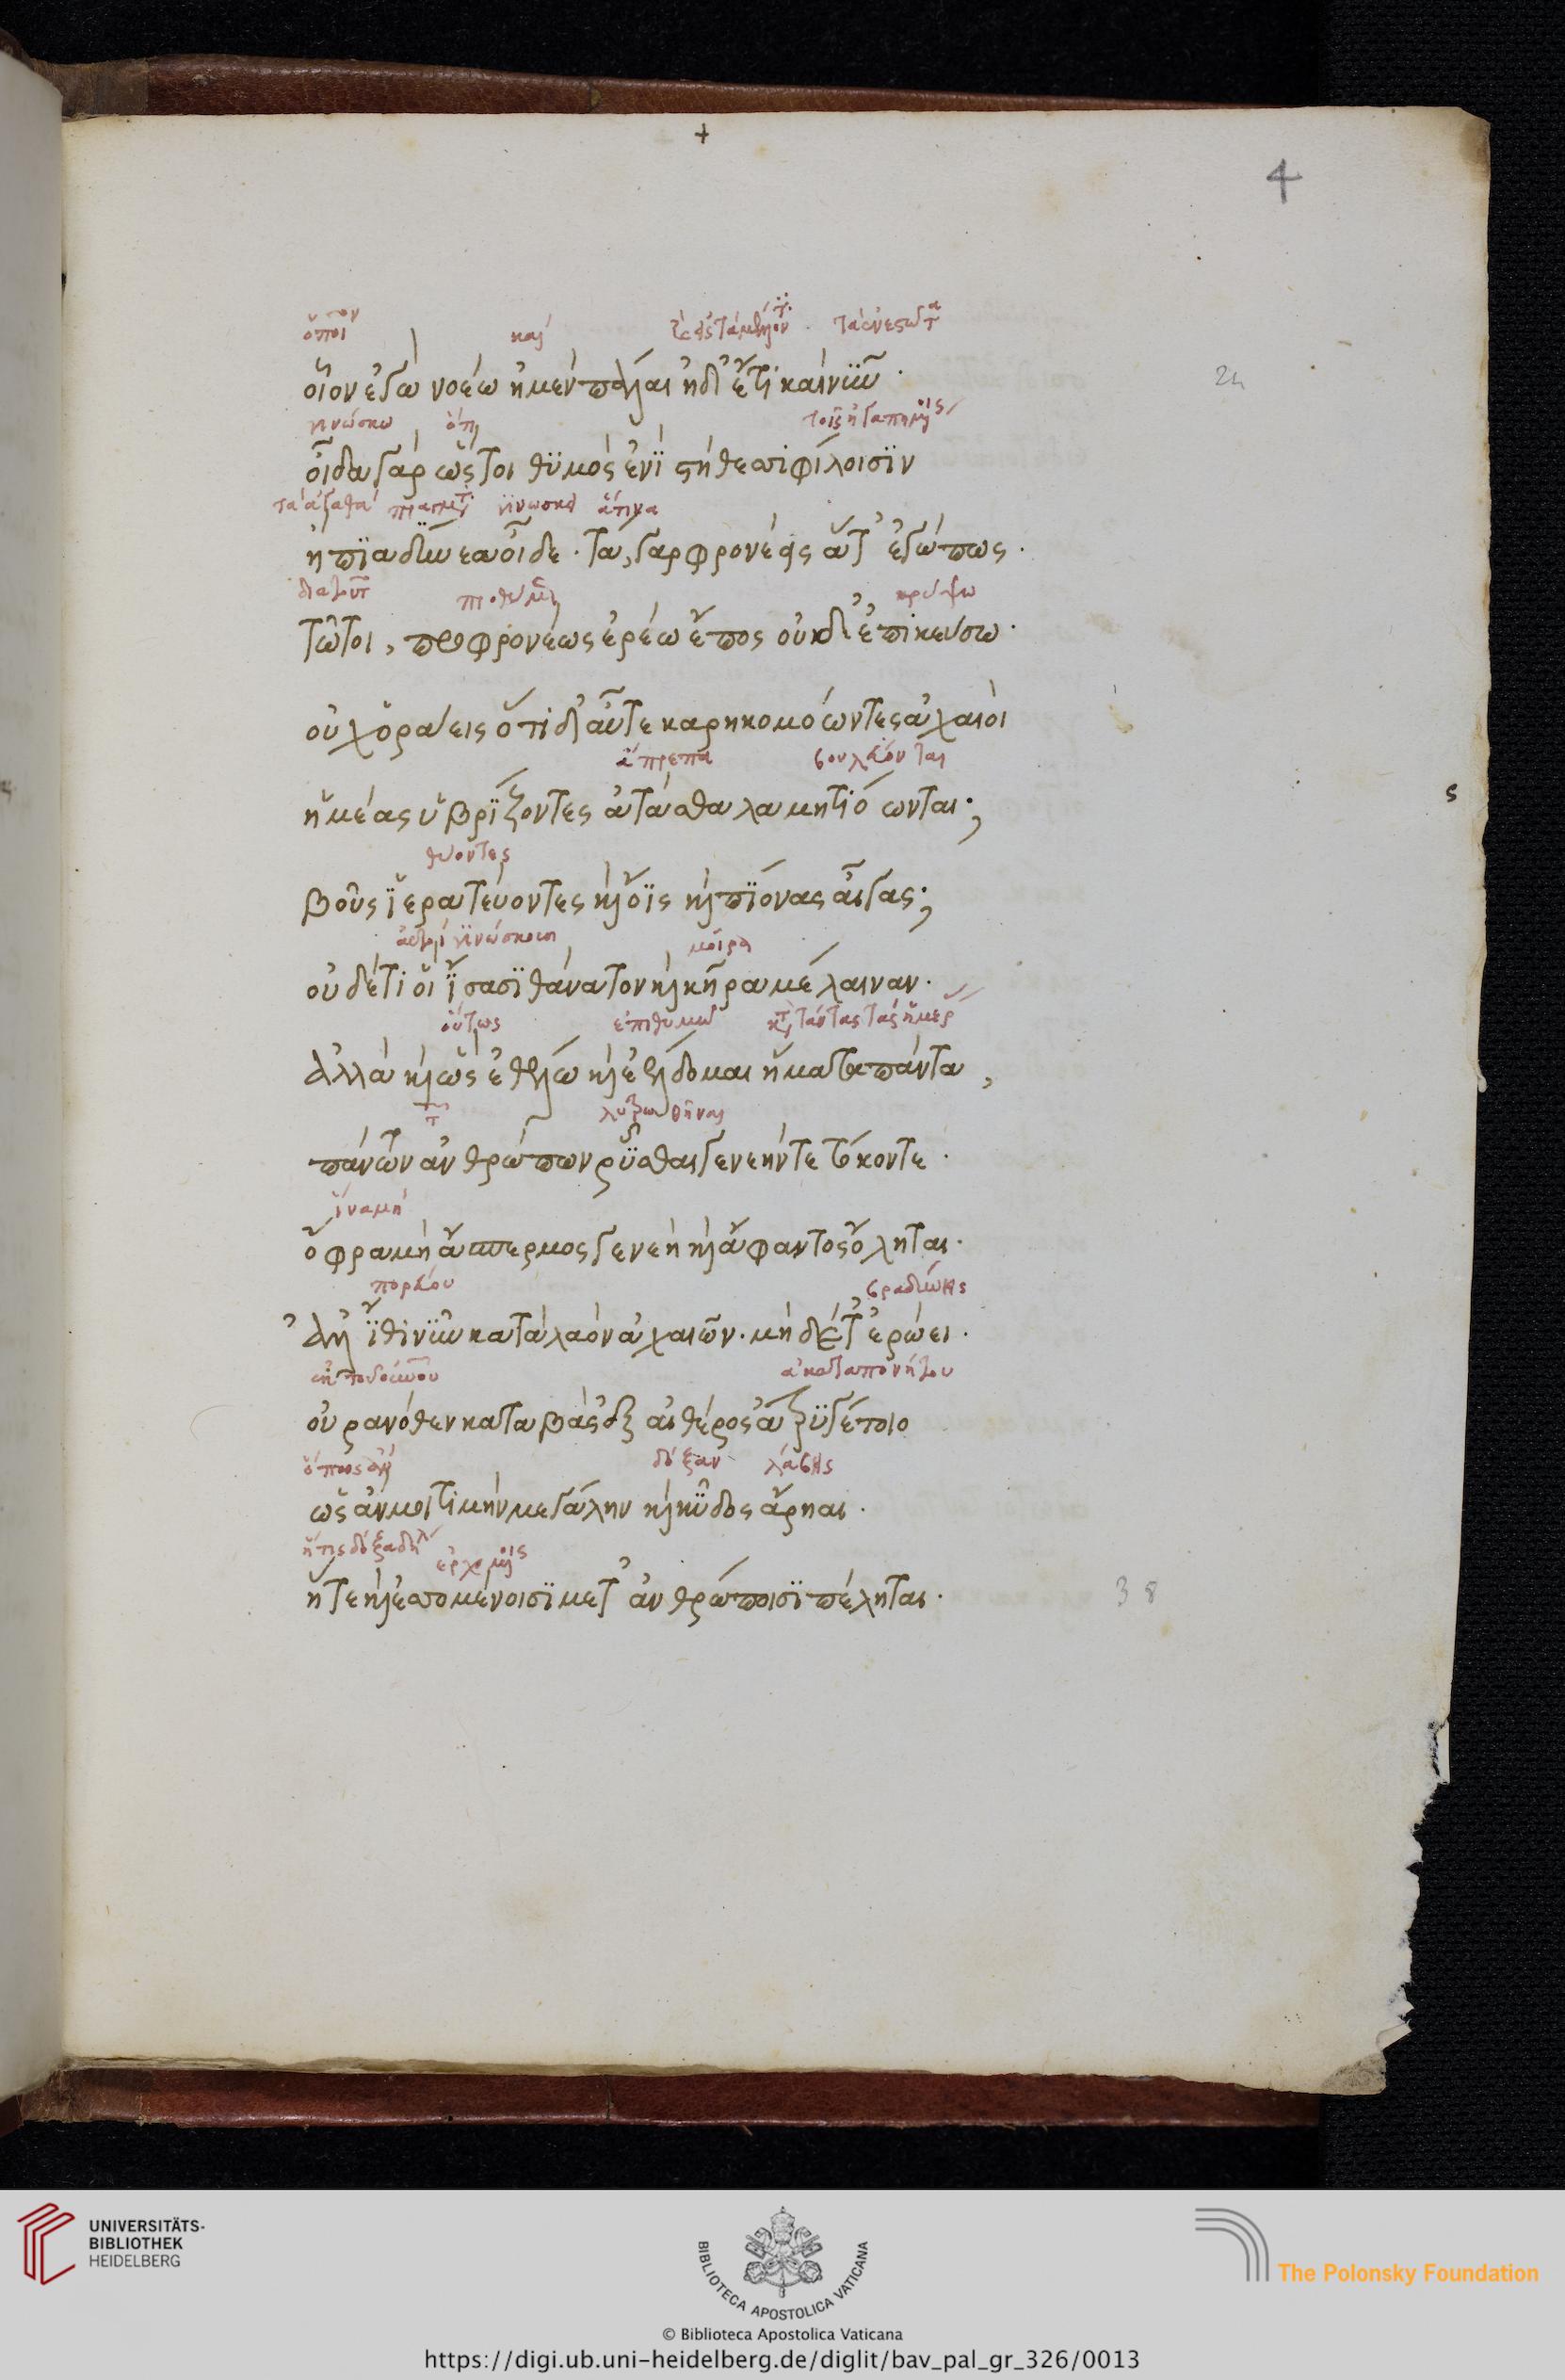 4
ὁποῖον καὶ τὰ ἐνεστῶτα
οἷον ἐγὼ νοέω ἠμὲν πάλαι ἠδ' ἔτι καὶ νῦν·
24
γινώσκω ὅτι τοῖς ἠγαπημένοις
οἶδα γὰρ ὥς τοι θυμὸς ἐνὶ στήθεσι φίλοισϊν
τὰ ἀγαθὰ γινώσκει ἅτινα
ἤπϊα δήνεα οἶδε· τὰ γὰρ φρονέεις ἅτ' ἐγώ πως·
διὰ τοῦτο προθύμως κρύψω
τῶ τοι, προφρονέως ἐρέω ἔπος οὐκ δ' ἐπικεύσω·
οὐχ ὁράεις ὅτι δ' αὖτε καρηκομόωντες ἀχαιοὶ
ἄπρεπα βουλεύονται
ἡμέας ὑβρίζοντες ἀτάσθαλα μητϊόωνται;
ς
θύοντες
βοῦς ἱερατεύοντες καὶ ὄϊς καὶ πίονας αἶγας;
γινώσκουσι μοῖρα
οὐδέ τι οἱ ἴσασϊ θάνατον καὶ κῆρα μέλαιναν·
οὕτως ἐπιθυμῶ κατὰ πάντας τὰς ἡμέρας
ἀλλὰ καὶ ὣς ἐθέλω καὶ ἐέλδομαι ἤματα πάντα,
λυτρωθῆναι
πάντων ἀνθρώπων ῥῦσθαι γενεήν τε τόκον τε·
ἵνα μὴ
ὄφρα μὴ ἄσπερμος γενεὴ καὶ ἄφαντος ὄληται·
πορεύου βραδύνῃς
ἀλλ' ἴθι νῦν κατὰ λαὸν ἀχαιῶν· μηδέ τ' ἐρώει·
ἐκ τοῦ οὐρανοῦ ἀκαταπονήτου
οὐρανόθεν καταβὰς δι' αἰθέρος ἀτρυγέτοιο
ὅπως ἂν δόξαν λάβῃς
ὡς ἄν μοι τιμὴν μεγάλην καὶ κῦδος ἄρηαι·
ἥτις δόξα δηλ ἐρχομένοις
ἥ τε καὶ ἐσσομένοισϊ μετ' ἀνθρώποισϊ πέληται·
38
UNIVERSITÄTS-
BIBLIOTHEK
HEIDELBERG
BIBLIOTECA APOSTOLICA VATICANA
The Polonsky Foundation
© Biblioteca Apostolica Vaticana
https://digi.ub.uni-heidelberg.de/diglit/bav_pal_gr_326/0013